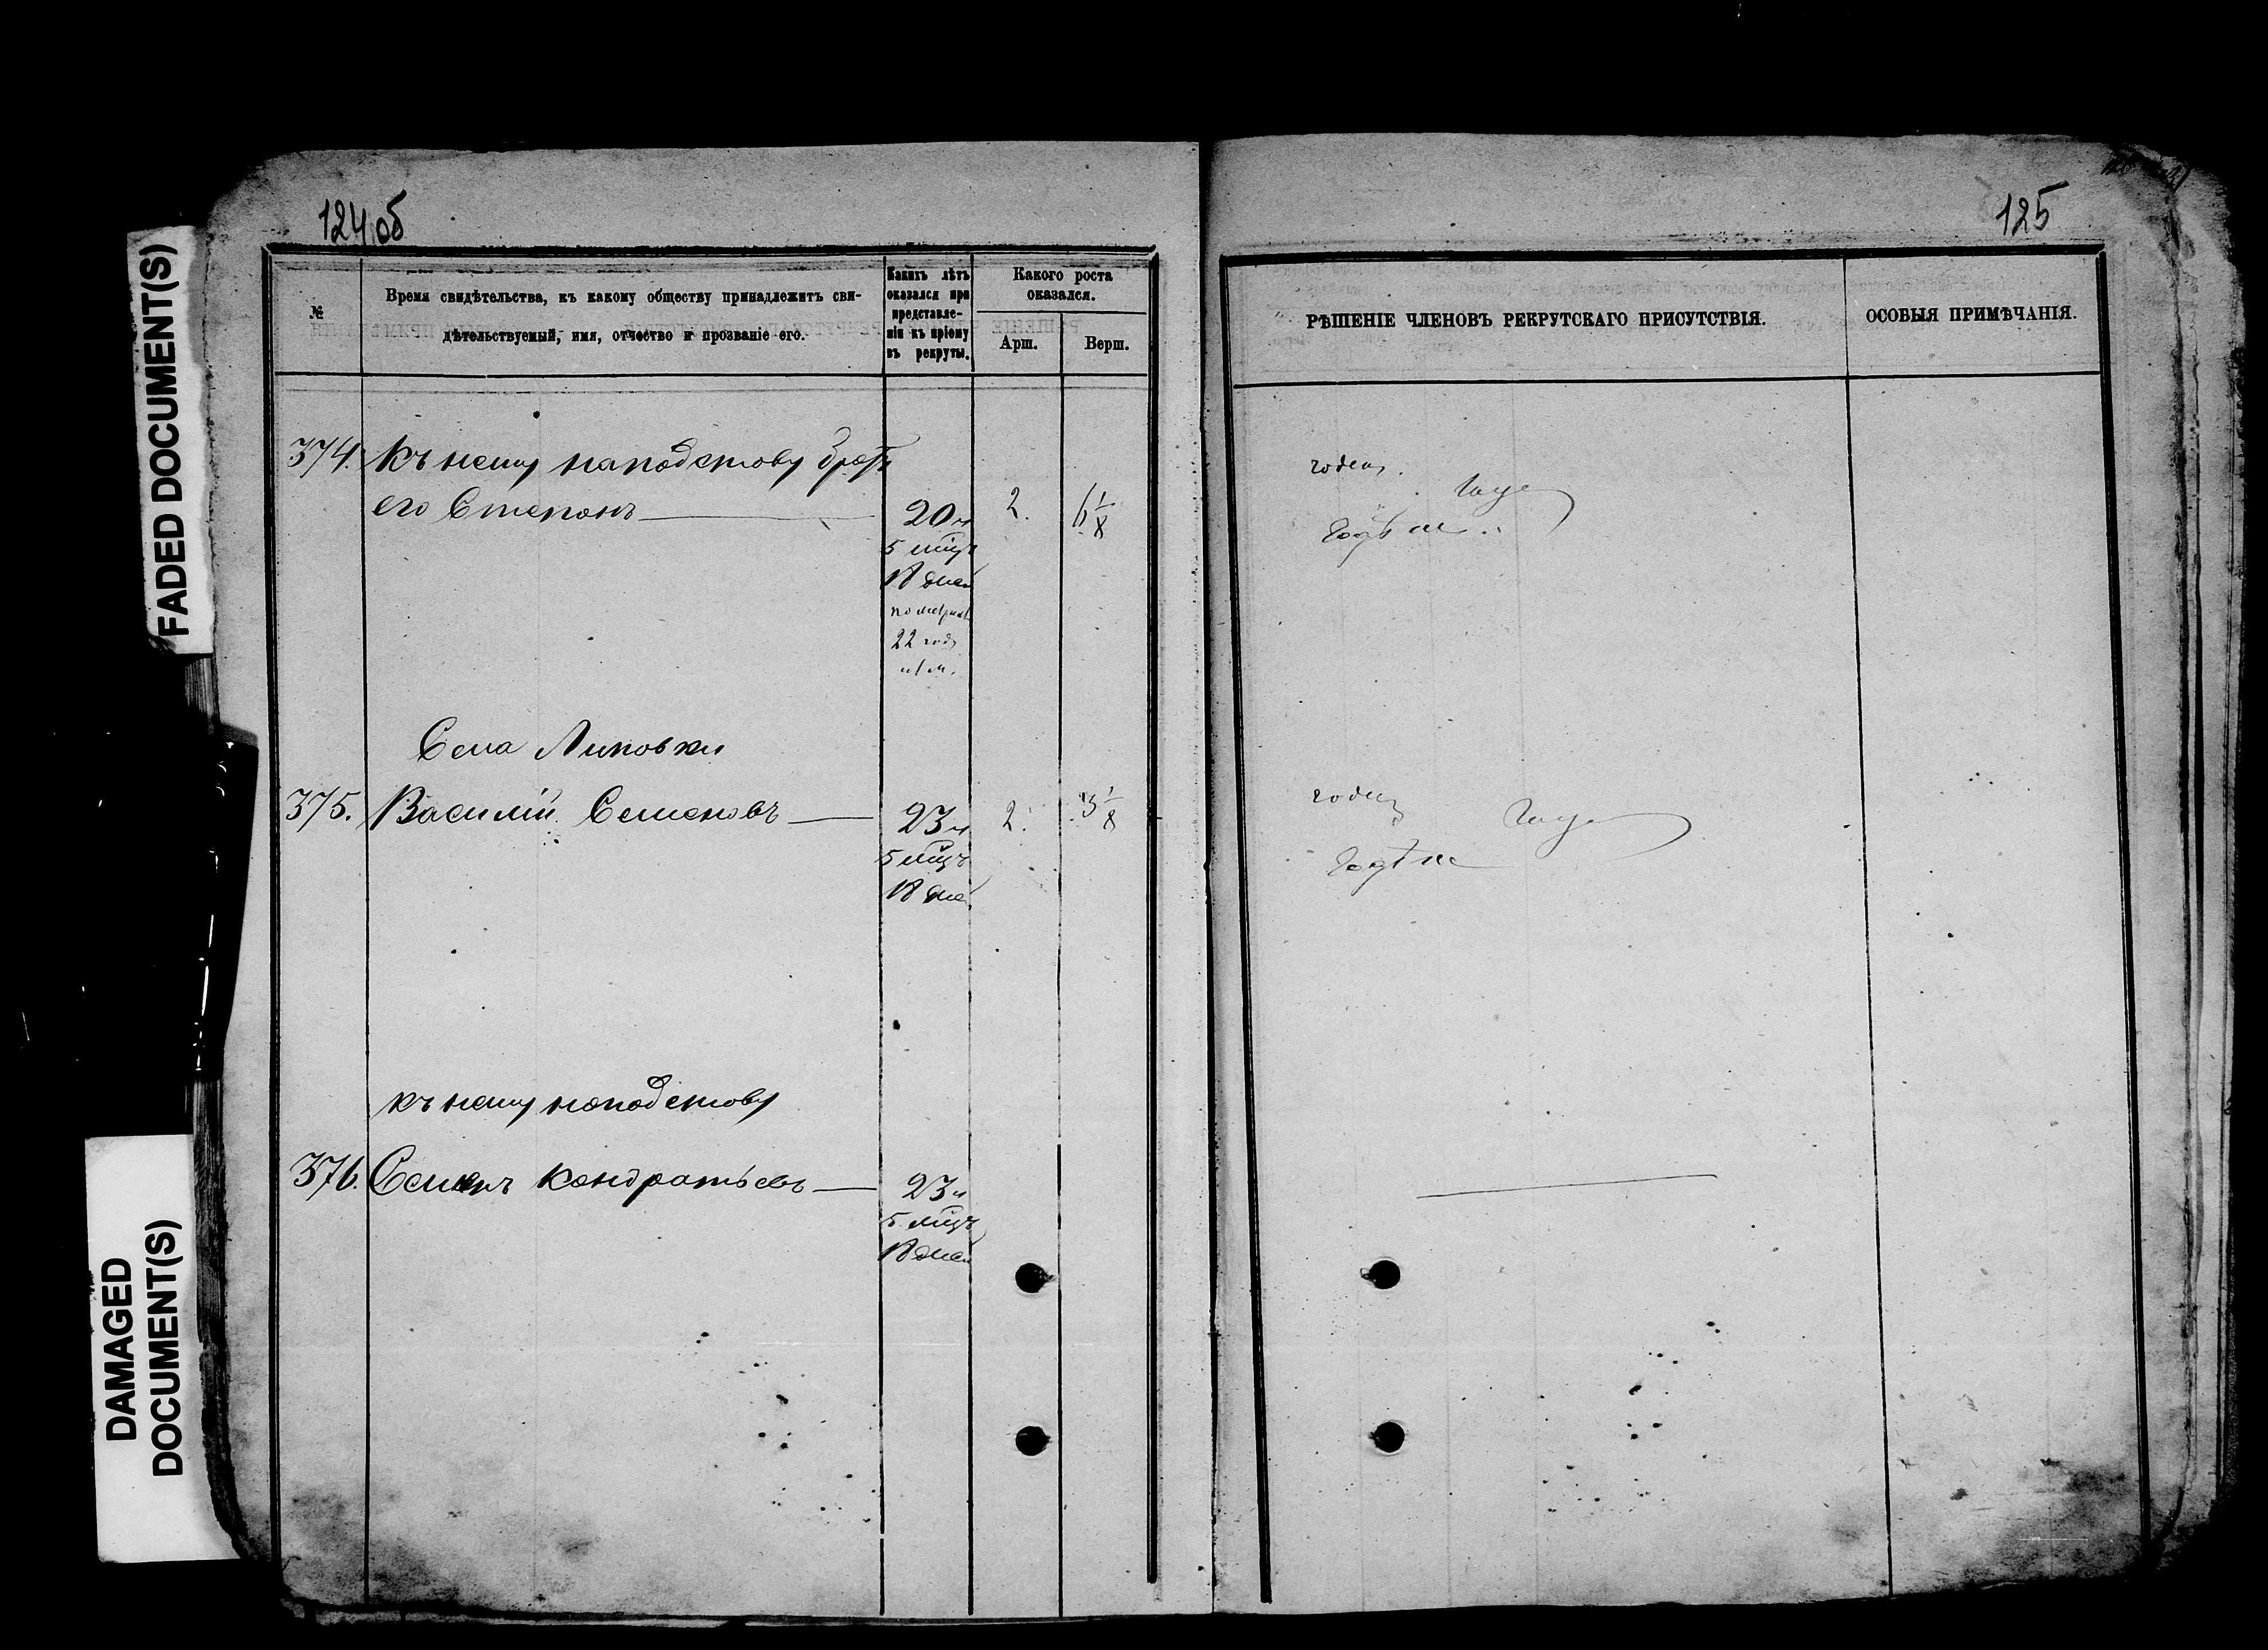 FADED DOCUMENT(S)
DAMAGED
DOCUMENT(S)
124 об
№
Время свидѣтельства, къ какому обществу принадлежитъ сви-
дѣтельствуемый, имя, отчество и прозваніе его.
Какихъ лѣтъ
оказался при
представле-
ніи къ пріему
въ рекруты.
Какого роста
оказался.
Арш.
Верш.
374. Къ нему на подставу братъ
его Степанъ — 20 л 2. 6 1/8
5 мцъ
18 дней
по метрик
22 год
Села Липовки
375. Василій Семеновъ — 23 л 2. 3 1/8
5 мцъ
18 дне
къ нему на подставу
376. Семенъ Кондратьевъ — 23 л
5 мцъ
18 дней
125
РѢШЕНІЕ ЧЛЕНОВЪ РЕКРУТСКАГО ПРИСУТСТВІЯ.
ОСОБЫЯ ПРИМѢЧАНІЯ.
годенъ
годенъ